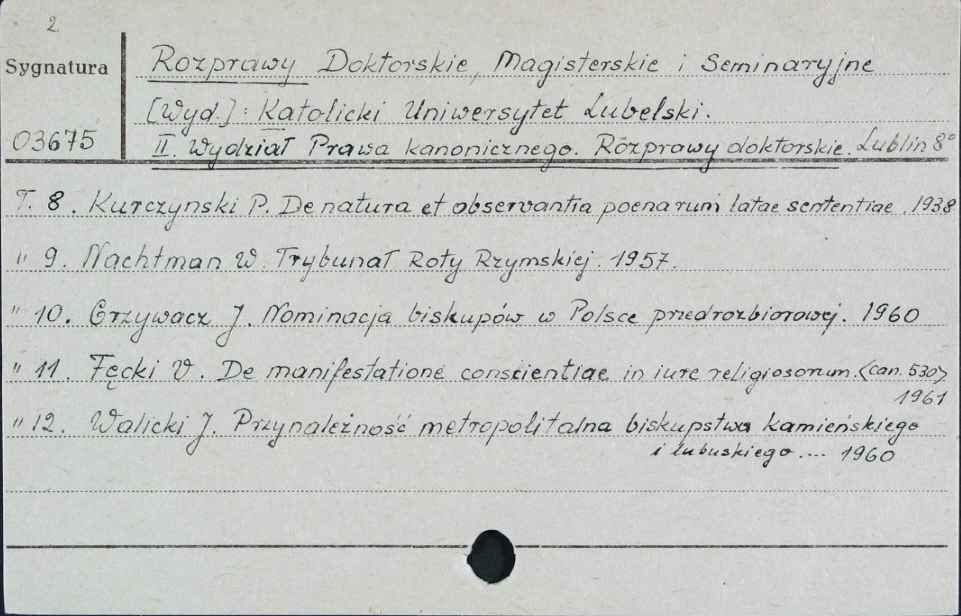 2.
Sygnatura
03675
Rozprawy Doktorskie, Magisterskie i Seminaryjne
[Wyd.]: Katolicki Uniwersytet Lubelski.
II. Wydział Prawa kanonicznego. Rozprawy doktorskie. Lublin 8°
T. 8. Kurczynski P. De natura et observantia poenarum latae sententiae. 1938
" 9. Nachtman W. Trybunał Roty Rzymskiej. 1957.
" 10. Grzywacz J. Nominacja biskupów w Polsce przedrozbiorowej. 1960
" 11. Fęcki V. De manifestatione conscientiae in iure religiosorum. (can. 530).
1961
" 12. Walicki J. Przynależność metropolitalna biskupstwa kamieńskiego
i lubuskiego.... 1960